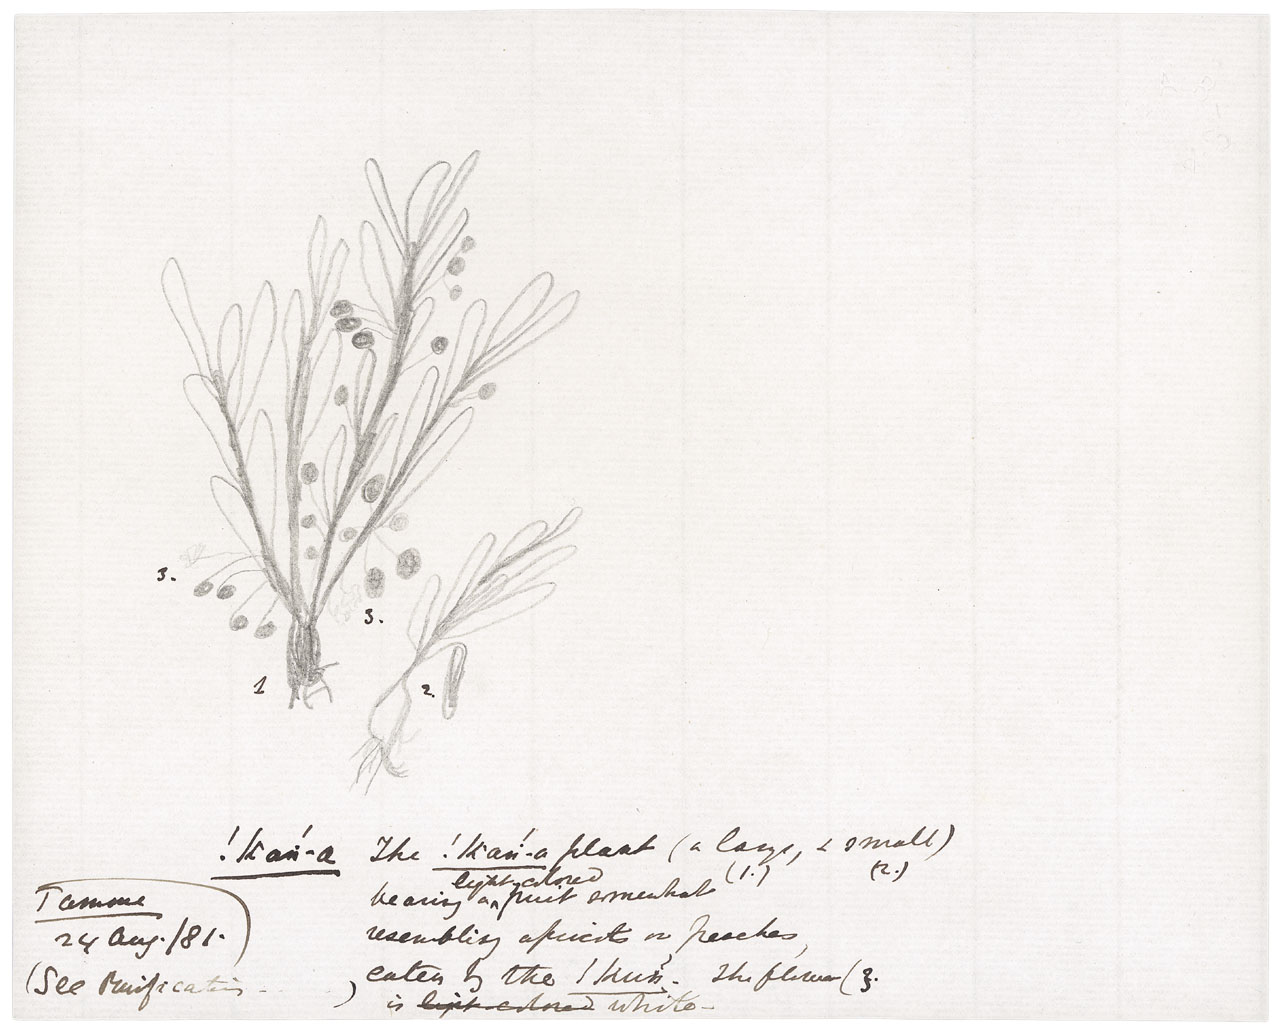 3.
3.
1
2.
!kań-a The !kań-a plant (a large, & small)
(1.) (2.)
light-colored
bearing a fruit somewhat
resembling apricots or peaches,
eaten by the !kuń. The flower (3.
is light-colored white.
Tamme
24 Aug./81.
(See Purification )